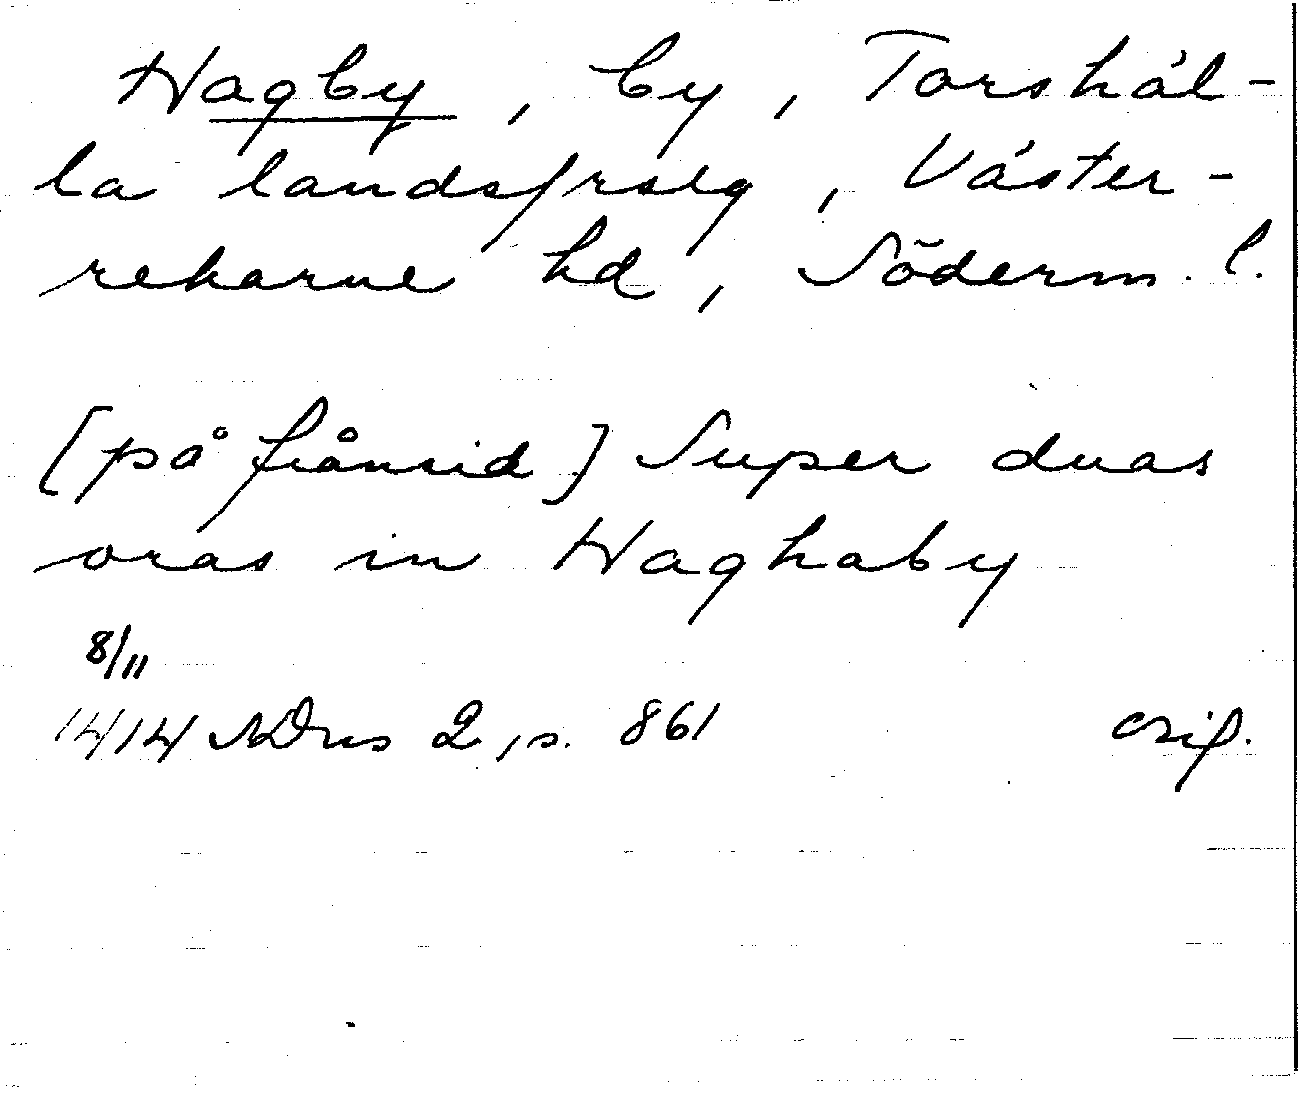 Hagby, by, Torshäl-
la landsfrslg, Väster-
rekarne hd, Söderm. l.
[på frånsid] Super duas
oras in Haghaby
8/11
1414 SDns 2, s. 861 orig.